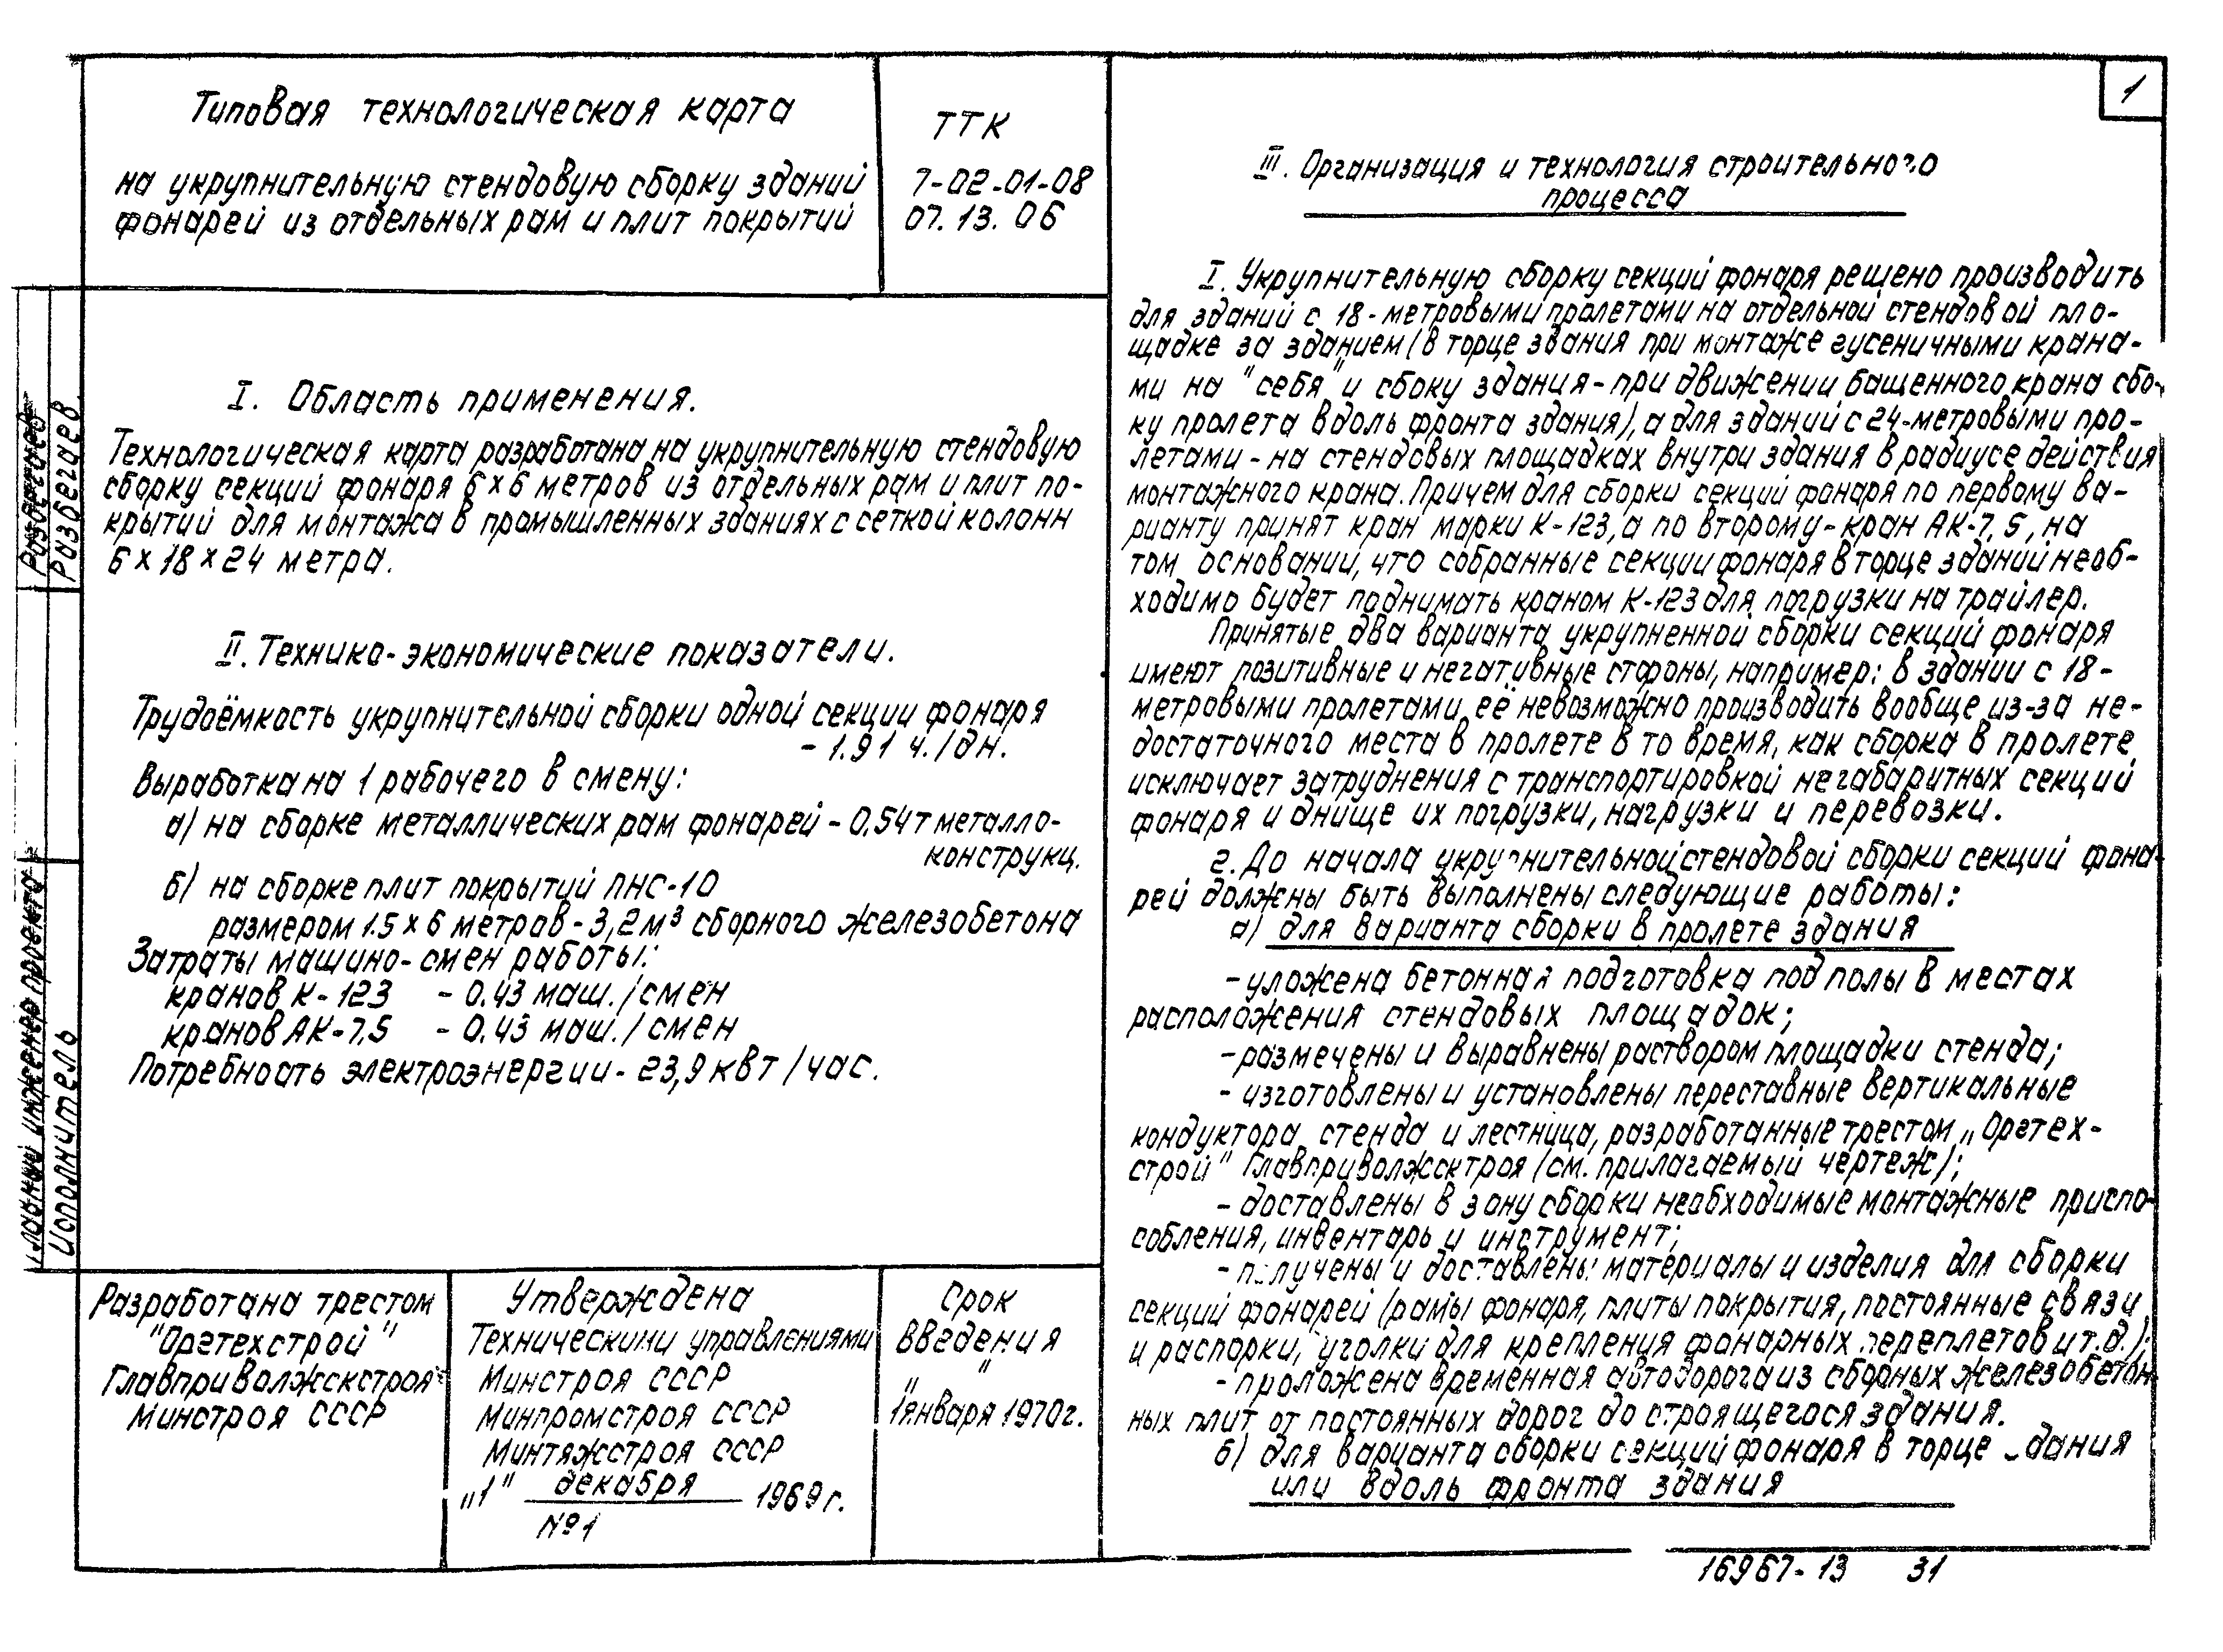 Типовая технологическая карта
на укрупнительную стендовую сборку зданий
фонарей из отдельных рам и плит покрытий
ТТК
7-02-01-08
07.13.06
I. Область применения.
Технологическая карта разработана на укрупнительную стендовую
сборку секций фонаря 6х6 метров из отдельных рам и плит по-
крытий для монтажа в промышленных зданиях с сеткой колонн
6х18х24 метра.
II. Технико-экономические показатели.
Трудоёмкость укрупнительной сборки одной секции фонаря
- 1.91 ч./дн.
Выработка на 1 рабочего в смену:
а) на сборке металлических рам фонарей - 0,54т металло-
конструкц.
б) на сборке плит покрытий ПНС-10
размером 1.5х6 метров - 3,2м³ сборного железобетона
Затраты машино-смен работы:
кранов К-123 - 0.43 маш./смен
кранов АК-7,5 - 0.43 маш./смен
Потребность электроэнергии - 23,9 квт/час.
Разработана трестом
"Оргтехстрой"
Главприволжскстроя
Минстроя СССР
Утверждена
Техническими управлениями
Минстроя СССР
Минпромстроя СССР
Минтяжстроя СССР
„1" декабря 1969г.
№1
Срок
введения
" "
1января 1970г.
Главный инженер проекта
Исполнитель
Разбегаев
1
III. Организация и технология строительного
процесса
I. Укрупнительную сборку секций фонаря решено производить
для зданий с 18-метровыми пролетами на отдельной стендовой пло-
щадке за зданием (в торце звания при монтаже гусеничными крана-
ми на "себя" и сбоку здания - при движении башенного крана сбо-
ку пролета вдоль фронта здания), а для зданий с 24-метровыми про-
летами - на стендовых площадках внутри здания в радиусе действия
монтажного крана. Причем для сборки секций фонаря по первому ва-
рианту принят кран марки К-123, а по второму - кран АК-7,5, на
том основании, что собранные секции фонаря в торце зданий необ-
ходимо будет поднимать краном К-123 для погрузки на трайлер.
Принятые два варианта укрупненной сборки секций фонаря
имеют позитивные и негативные стороны, например: в здании с 18-
метровыми пролетами её невозможно производить вообще из-за не-
достаточного места в пролете в то время, как сборка в пролете
исключает затруднения с транспортировкой негабаритных секций
фонаря и днище их погрузки, нагрузки и перевозки.
2. До начала укрупнительной стендовой сборки секций фона-
рей должны быть выполнены следующие работы:
а) для варианта сборки в пролете здания
- уложена бетонная подготовка под полы в местах
расположения стендовых площадок;
- размечены и выравнены раствором площадки стенда;
- изготовлены и установлены переставные вертикальные
кондуктора стенда и лестница, разработанные трестом „Оргтех-
строй" Главприволжсктроя (см. прилагаемый чертеж);
- доставлены в зону сборки необходимые монтажные приспо-
собления, инвентарь и инструмент;
- получены и доставлены материалы и изделия для сборки
секций фонарей (рамы фонаря, плиты покрытия, постоянные связи
и распорки, уголки для крепления фонарных переплетов и т.д.);
- проложена временная автодорога из сборных железобетон-
ных плит от постоянных дорог до строящегося здания.
б) для варианта сборки секций фонаря в торце здания
или вдоль фронта здания
16967-13 31